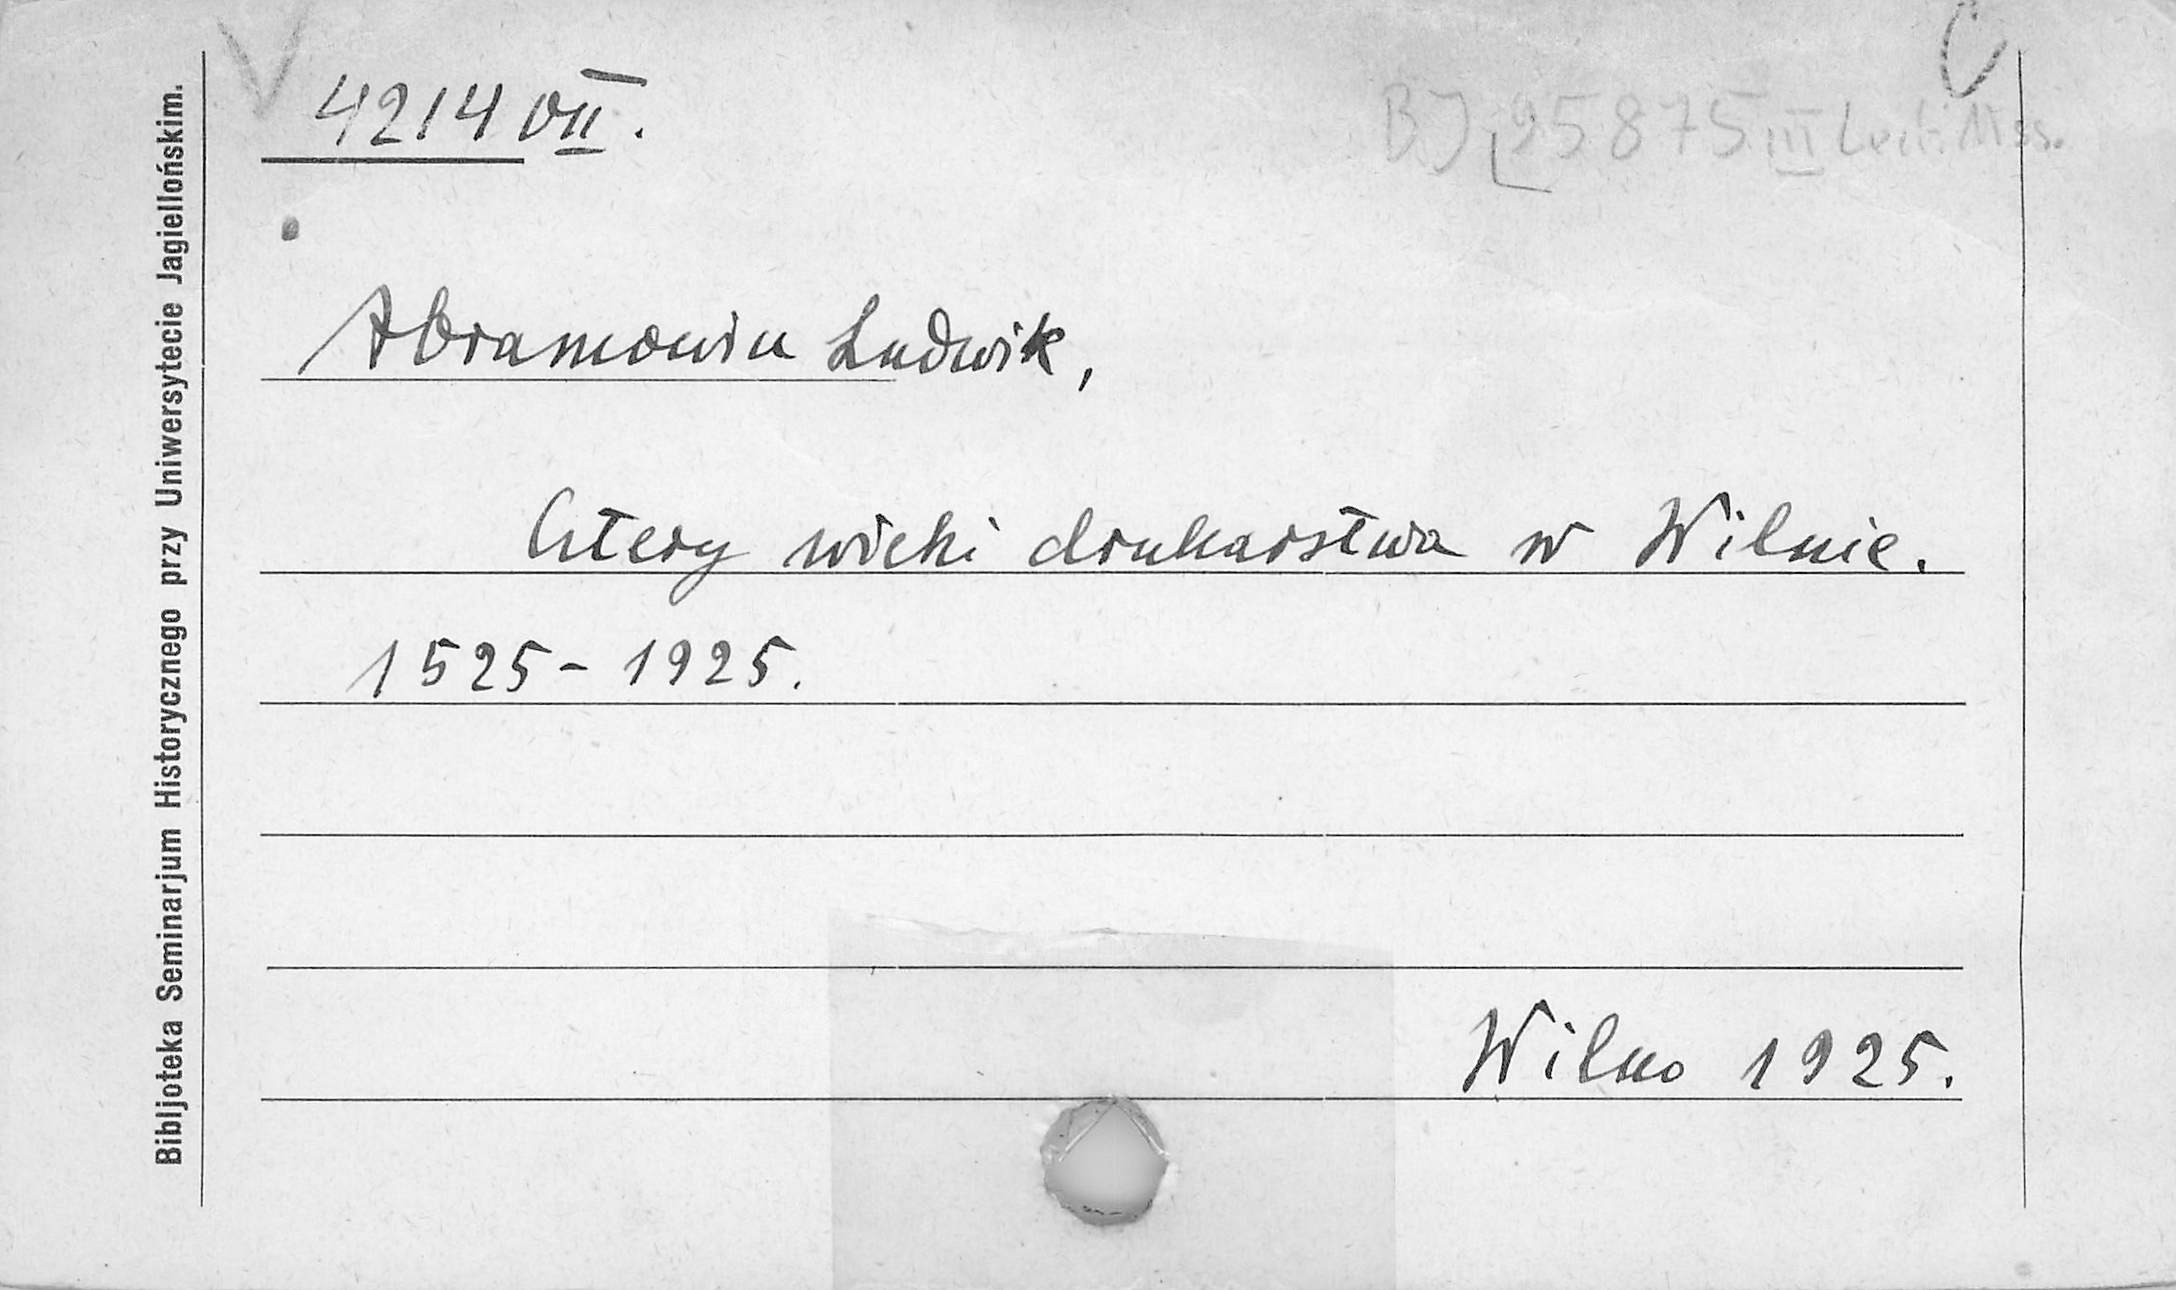 4214 VII.
BJ 95875 III Lect. Mss.
Abramowicz Ludwik,
Cztery wieki drukarstwa w Wilnie.
1525-1925.
Wilno 1925.
Bibljoteka Seminarjum Historycznego przy Uniwersytecie Jagiellońskim.